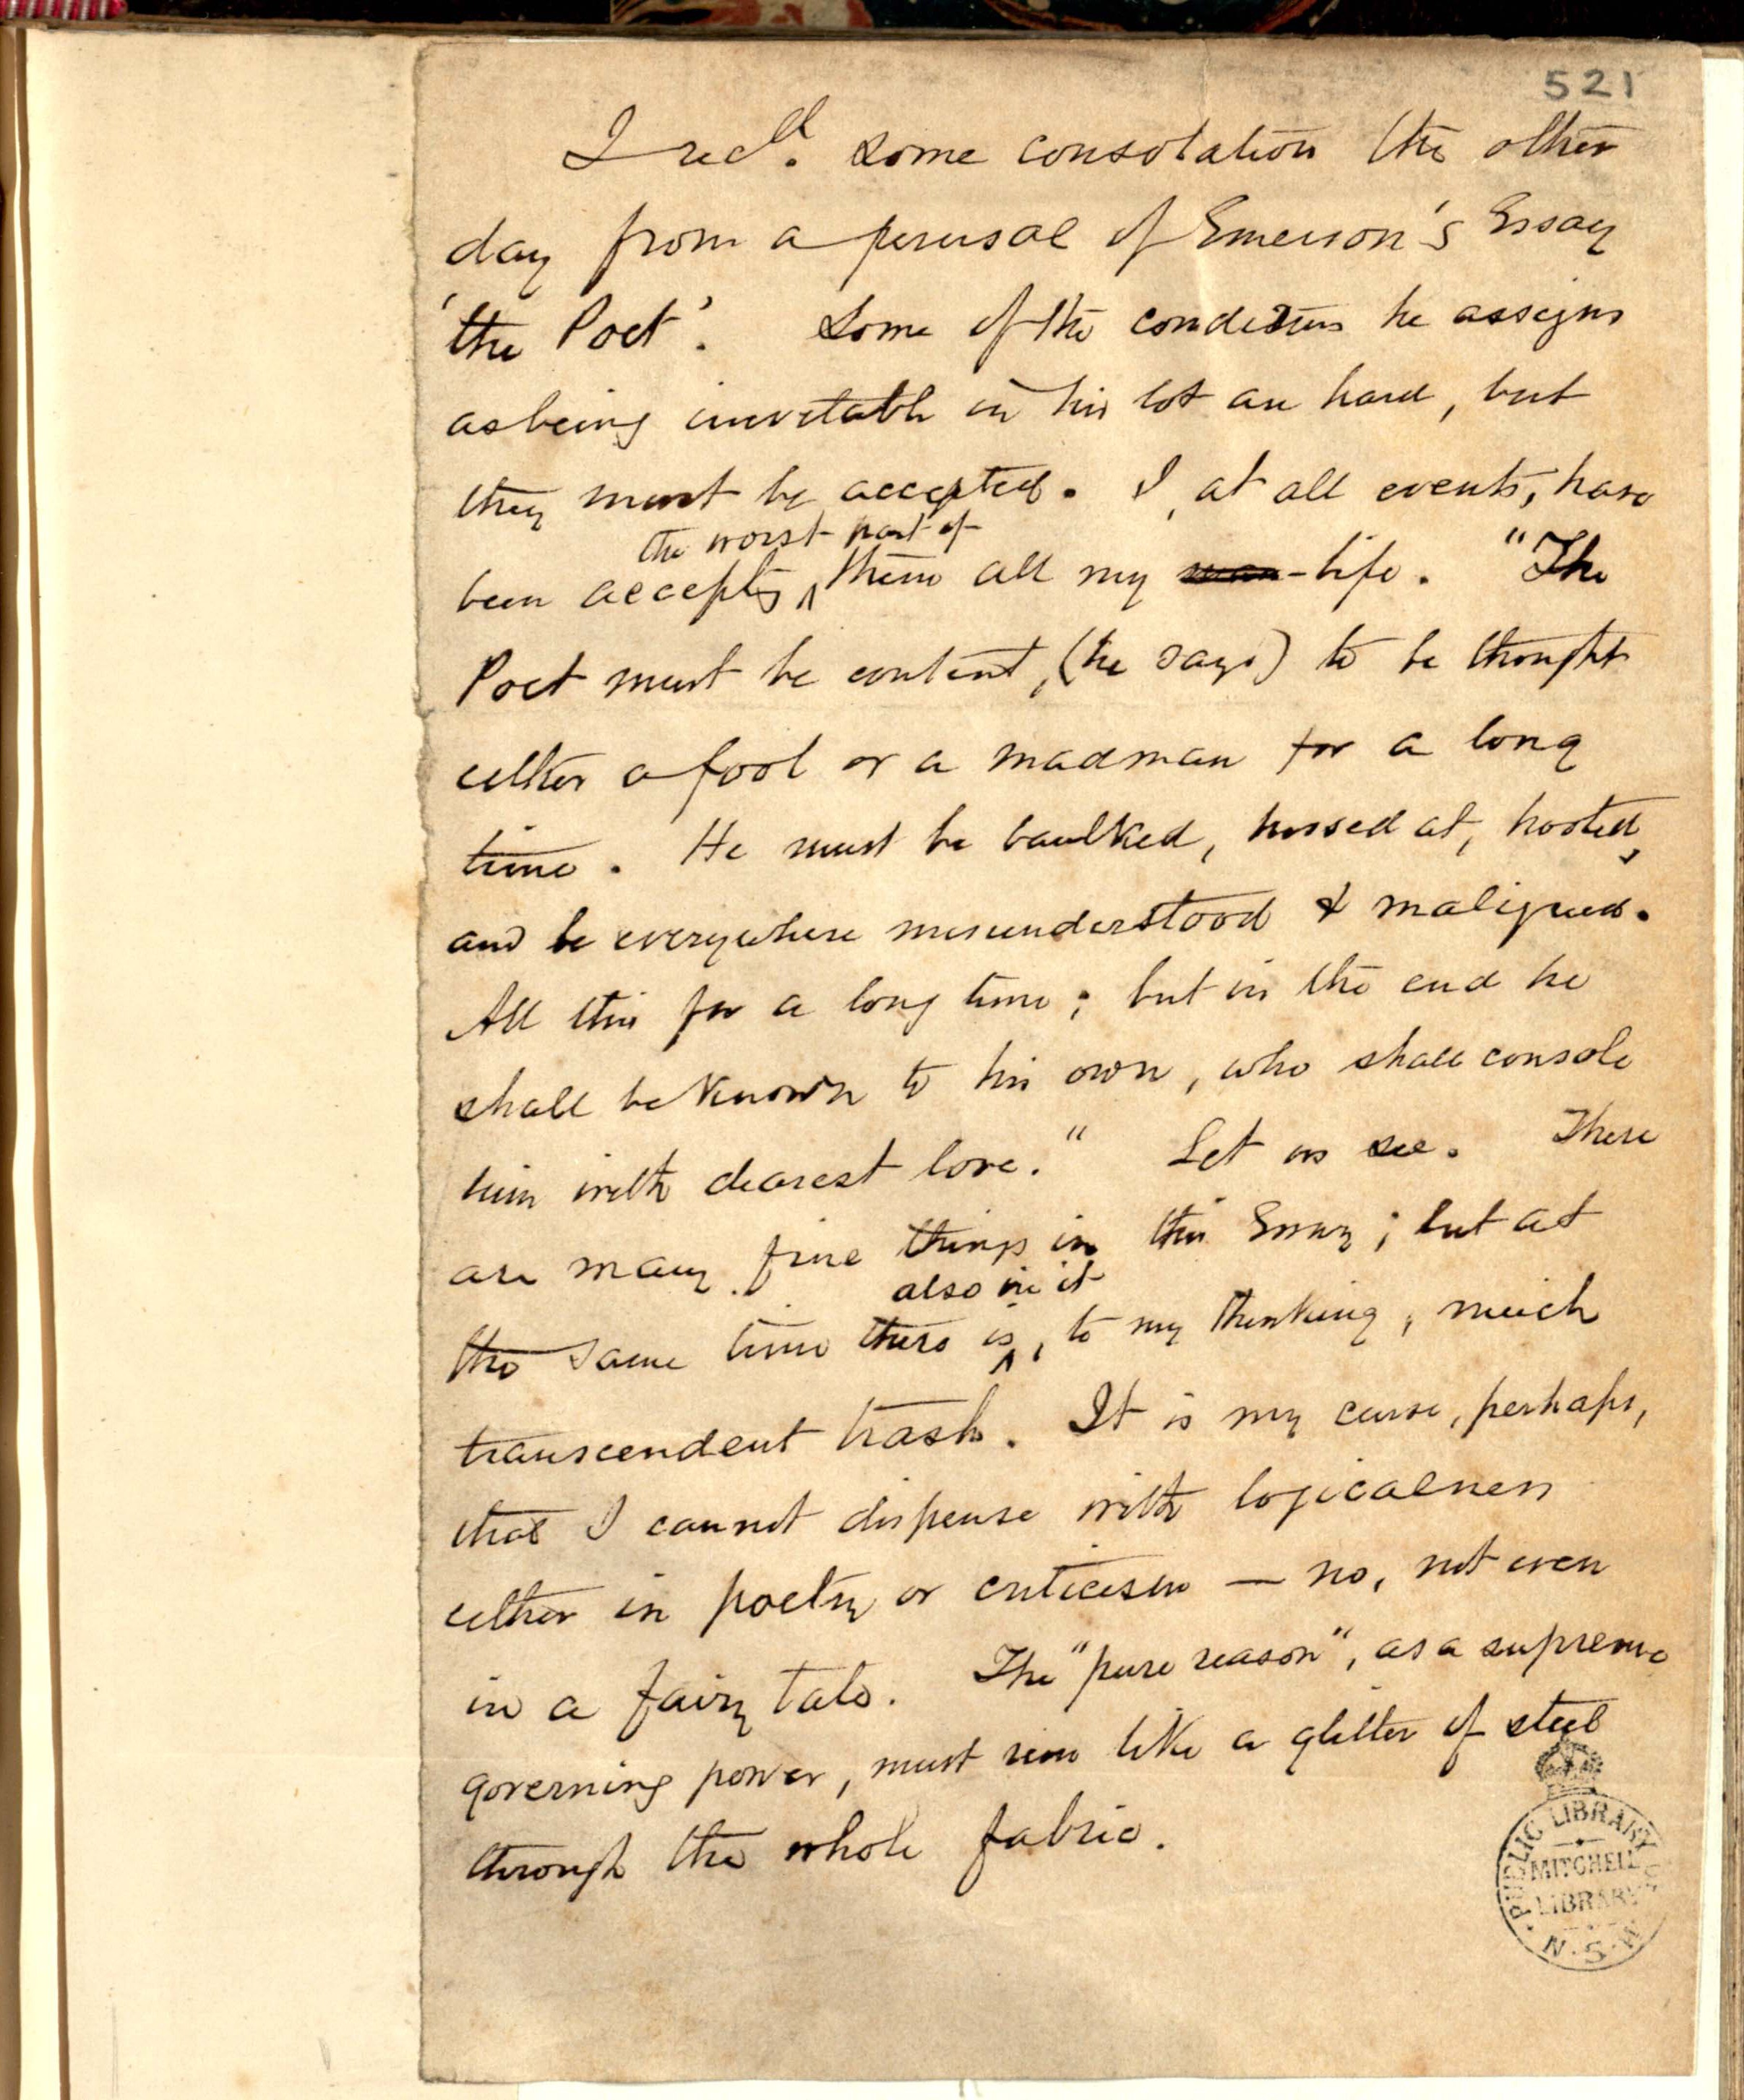 521
I recd. some consolation the other
day from a perusal of Emerson's Essay
'the Poet'. Some of the conditions he assigns
as being inevitable in his lot are hard, but
they must be accepted. I, at all events, have
the worst part of
been accepting ^ them all my life. "The
Poet must be content, (he says) to be thought
either a fool or a madman for a long
time. He must be baulked, hissed at, hooted,
and be everywhere misunderstood & maligned.
All this for a long time; but in the end he
shall be known to his own, who shall console
him with dearest love." Let us see. There
are many fine things in this Essay; but at
also in it
the same time there is ^, to my thinking, much
transcendent trash. It is my curse, perhaps,
that I cannot dispense with logicalness
either in poetry or criticism — no, not even
in a fairy tale. The "pure reason", as a supreme
governing power, must run like a glitter of steel
through the whole fabric.
PUBLIC LIBRARY
MITCHELL
LIBRARY
N.S.W.